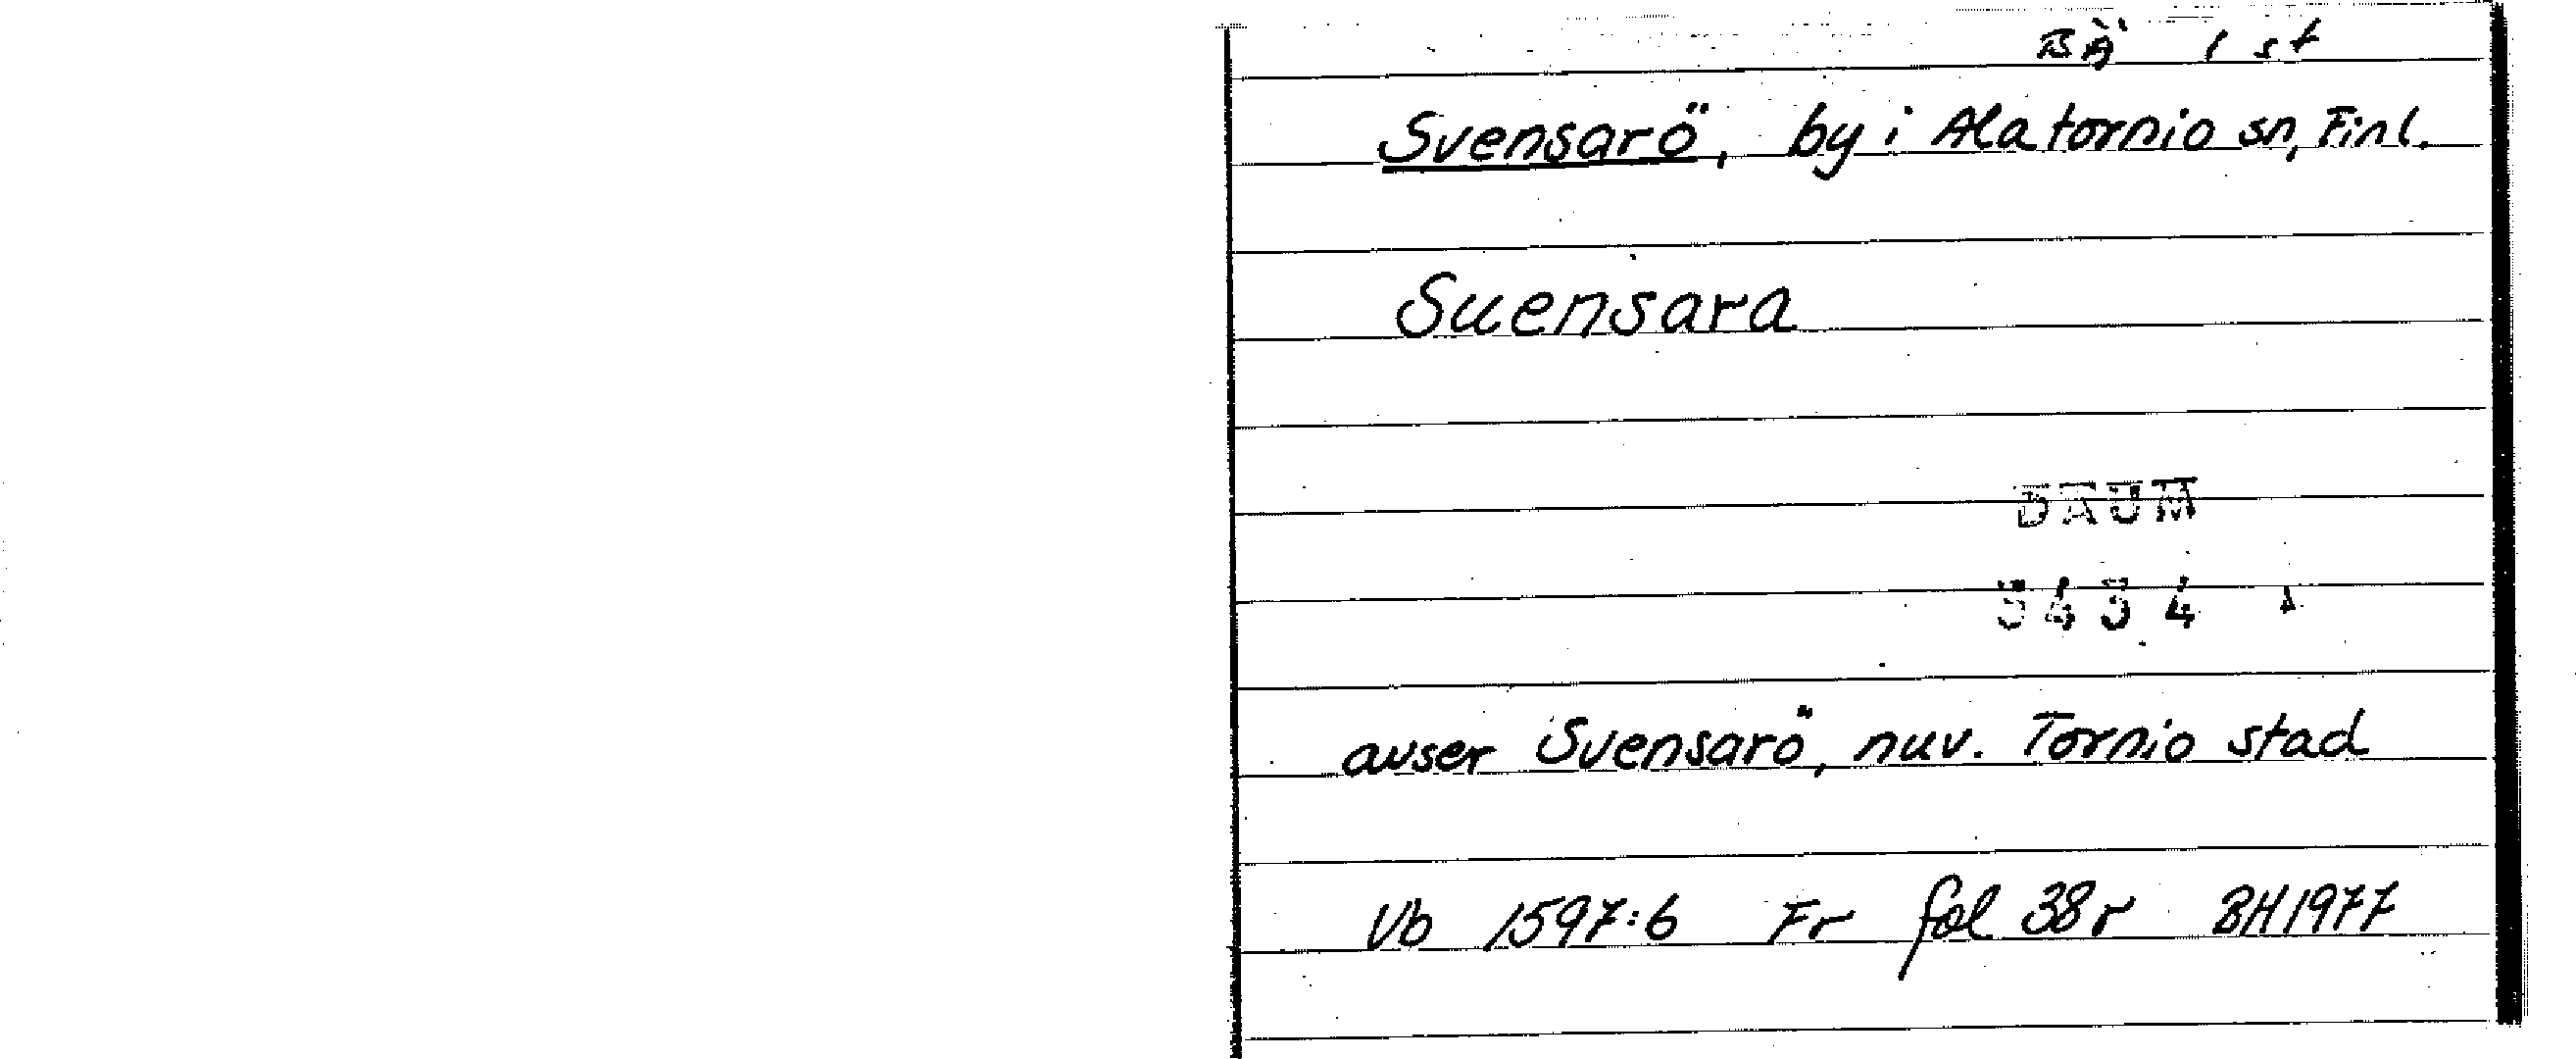 BÄ 1 st
Svensarö, by i Alatornio sn, Finl.
Suensara
DAUM
5454
avser Svensarö, nuv. Tornio stad
Vb 1597:6 Fr fol 38r BH1977